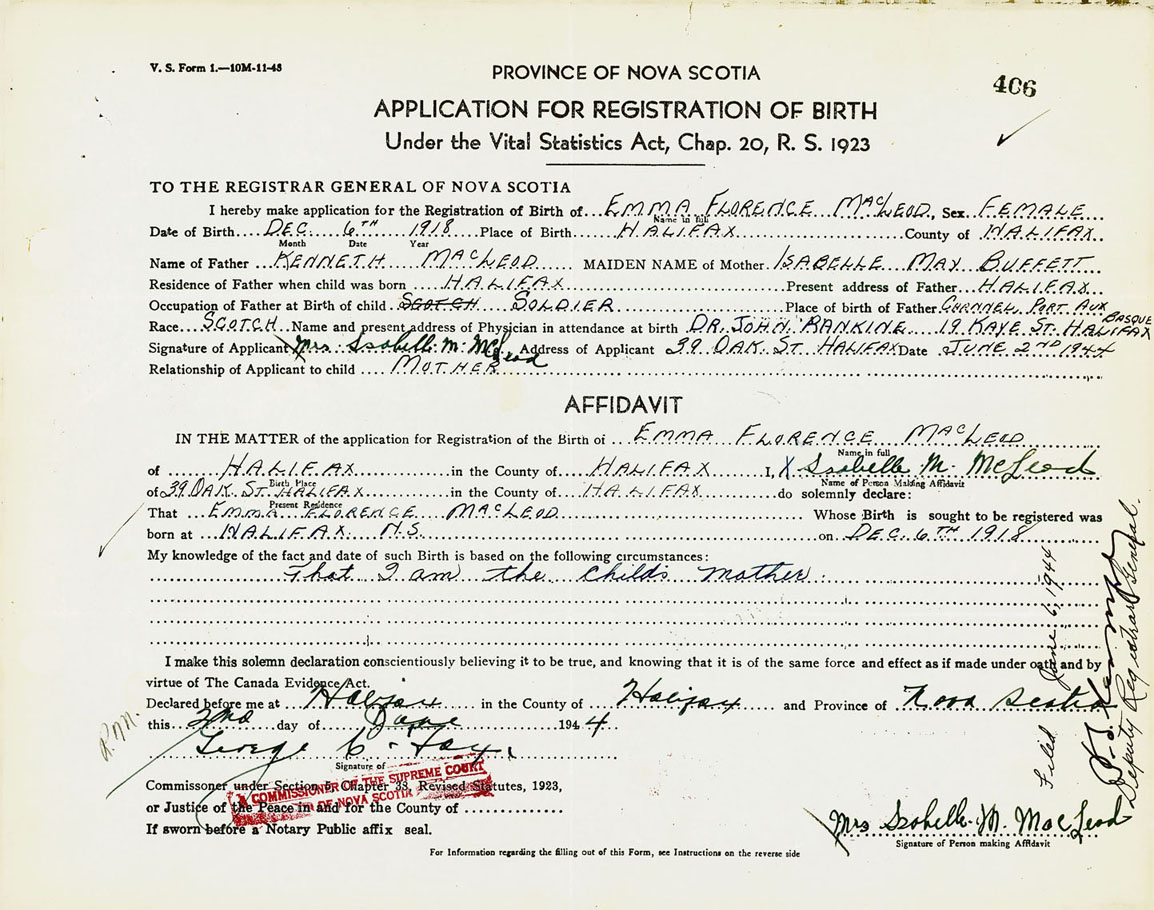 V. S. Form 1.—10M-11-43
PROVINCE OF NOVA SCOTIA
406
APPLICATION FOR REGISTRATION OF BIRTH
Under the Vital Statistics Act, Chap. 20, R. S. 1923
TO THE REGISTRAR GENERAL OF NOVA SCOTIA
I hereby make application for the Registration of Birth of EMMA FLORENCE MACLEOD, Sex FEMALE
Name in full
Date of Birth DEC. 6TH 1918 Place of Birth HALIFAX County of HALIFAX
Month Date Year
Name of Father KENNETH MACLEOD MAIDEN NAME of Mother ISABELLE MAY BUFFETT
Residence of Father when child was born HALIFAX Present address of Father HALIFAX
Occupation of Father at Birth of child SCOTCH SOLDIER Place of birth of Father CHANNEL, PORT AUX BASQUE
Race SCOTCH Name and present address of Physician in attendance at birth DR. JOHN RANKINE 19 KAYE ST. HALIFAX
Signature of Applicant Mrs. Isabelle M. McLeod Address of Applicant 39 OAK ST HALIFAX Date JUNE 2ND 1944
Relationship of Applicant to child MOTHER
AFFIDAVIT
IN THE MATTER of the application for Registration of the Birth of EMMA FLORENCE MACLEOD
Name in full
of HALIFAX in the County of HALIFAX I, X Isabelle M. McLeod
Birth Place Name of Person Making Affidavit
of 39 OAK ST HALIFAX in the County of HALIFAX do solemnly declare:
Present Residence
That EMMA FLORENCE MACLEOD Whose Birth is sought to be registered was
born at HALIFAX N.S. on DEC. 6TH 1918
My knowledge of the fact and date of such Birth is based on the following circumstances:
That I am the childs mother.
I make this solemn declaration conscientiously believing it to be true, and knowing that it is of the same force and effect as if made under oath and by
virtue of The Canada Evidence Act.
Declared before me at Halifax in the County of Halifax and Province of Nova Scotia
this 2nd day of June 1944
George C.
Signature of
Commissioner under Section 5, Chapter 33, Revised Statutes, 1923,
A COMMISSIONER OF THE SUPREME COURT
OF NOVA SCOTIA
or Justice of the Peace in and for the County of
If sworn before a Notary Public affix seal.
Mrs Isabelle M. MacLeod
Signature of Person making Affidavit
For Information regarding the filling out of this Form, see Instructions on the reverse side
Filed June 6, 1944
Deputy Registrar General.